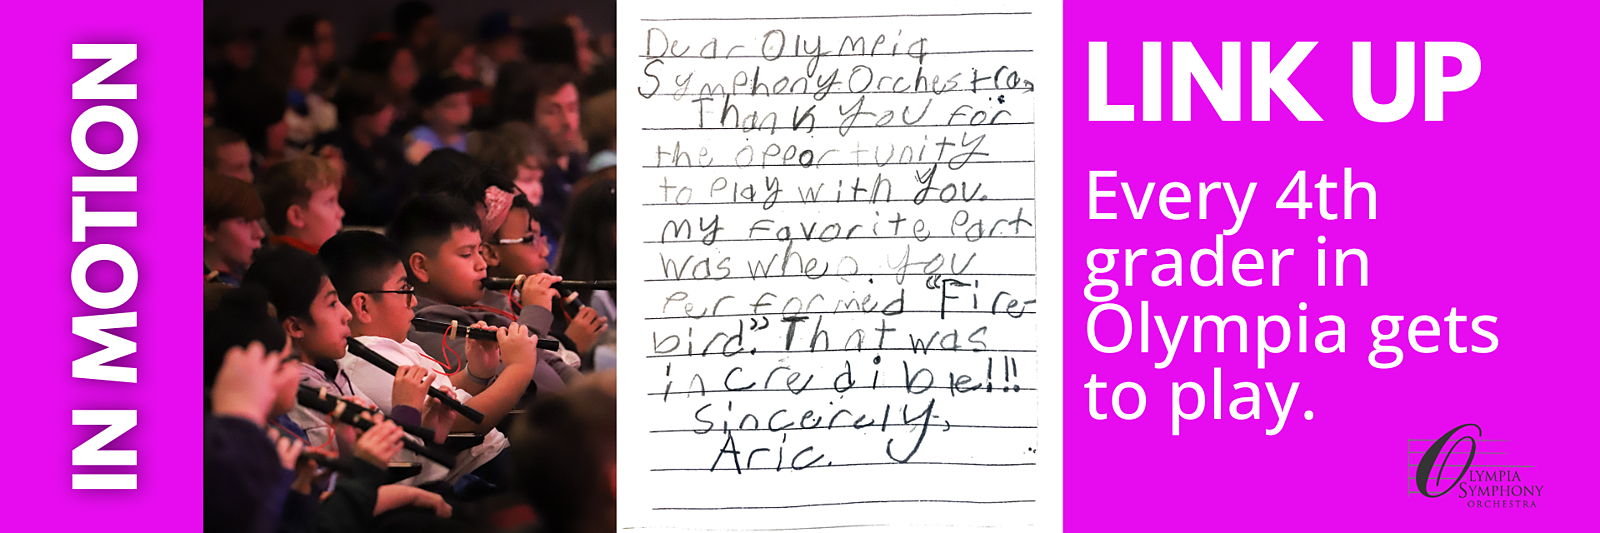 IN MOTION
Dear Olympia
Symphony Orchestra,
Thank you for
the opportunity
to play with you.
my favorite part
was when you
performed "Fire-
bird." That was
incredible!!!
sincerely,
Aric.
LINK UP
Every 4th
grader in
Olympia gets
to play.
OLYMPIA
SYMPHONY
ORCHESTRA